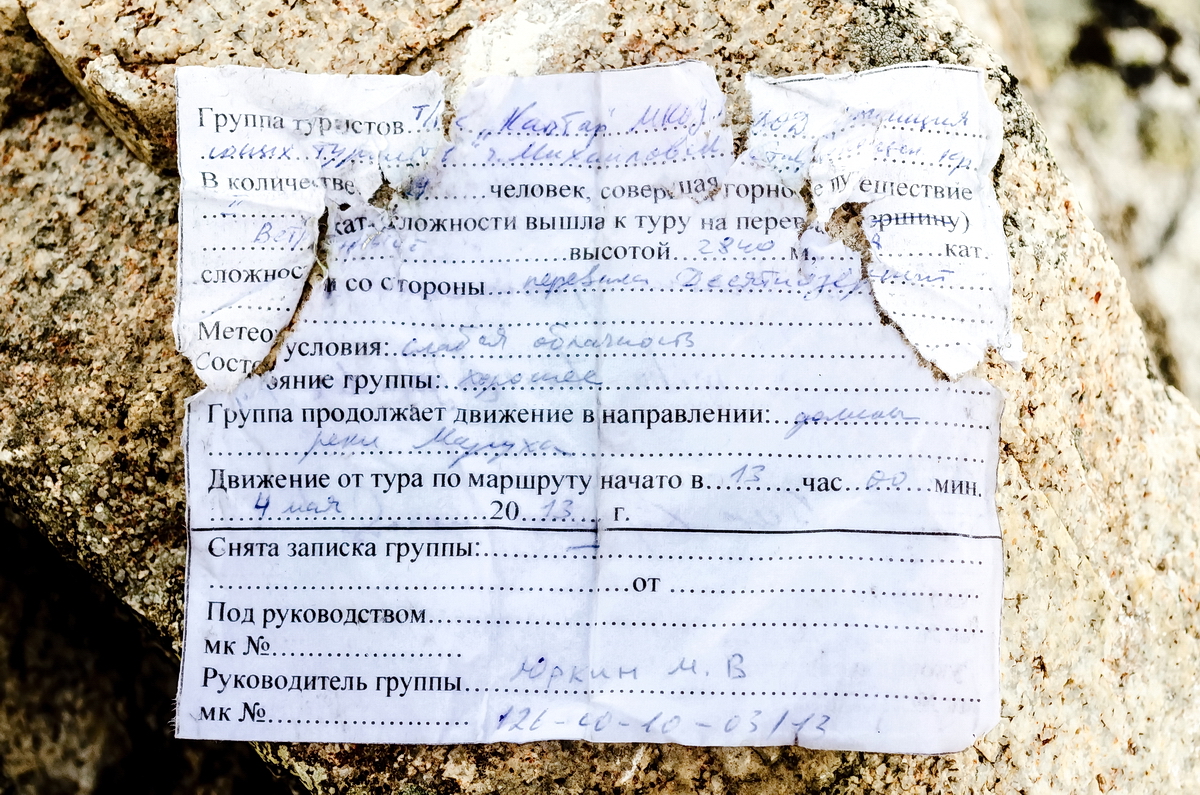 Группа туристов Т/к "Кавтар" МКОУ ДОД
юных туристов с. Михайловск
В количестве 9 человек, совершая горное путешествие
кат. сложности вышла к туру на перевал (вершину)
Ветреный высотой 2840 м, кат.
сложности со стороны перевала Десятиозёрный
Метеоусловия: слабая облачность
Состояние группы: хорошее
Группа продолжает движение в направлении: долины
реки Маруха
Движение от тура по маршруту начато в 13 час 00 мин.
4 мая 2013 г.
Снята записка группы: —
от
Под руководством
мк №
Руководитель группы Юркин М. В
мк № 126-10-10-03/13